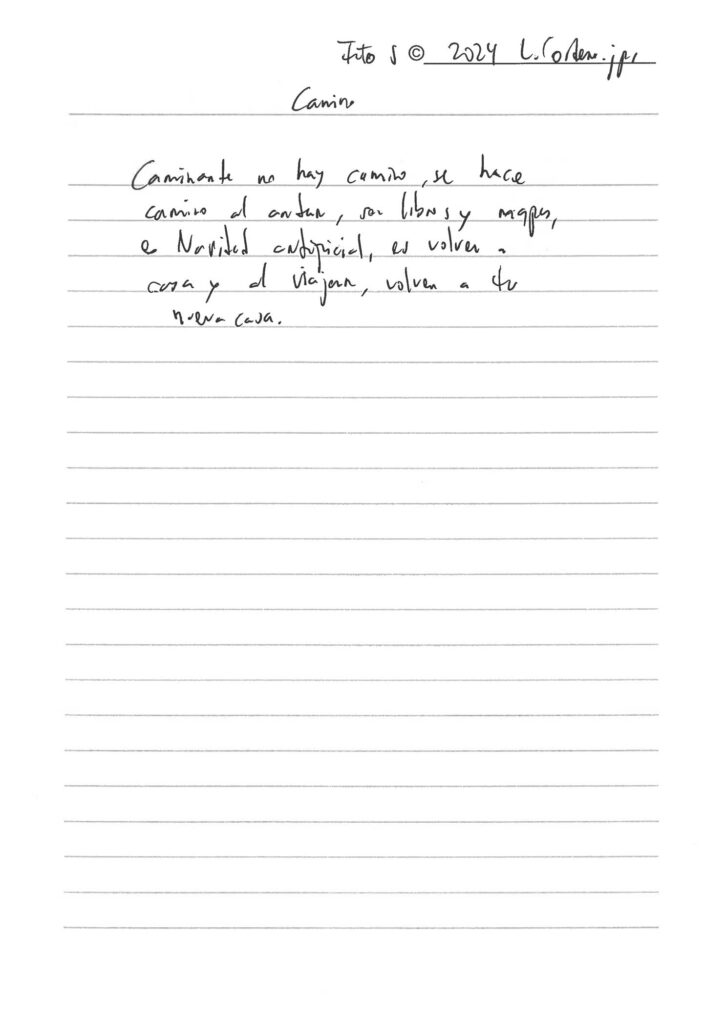 Fito S © 2024 L.
Camino
Caminante no hay camino, se hace
camino al andar, son libros y mapas,
e Navidad artificial, es volver a
casa y al viajar, volver a tu
nueva casa.